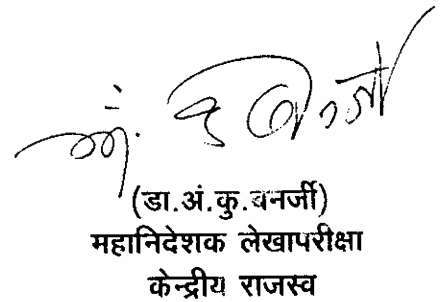 अं. कु बनर्जी
(डा.अं.कु.बनर्जी)
महानिदेशक लेखापरीक्षा
केन्द्रीय राजस्व